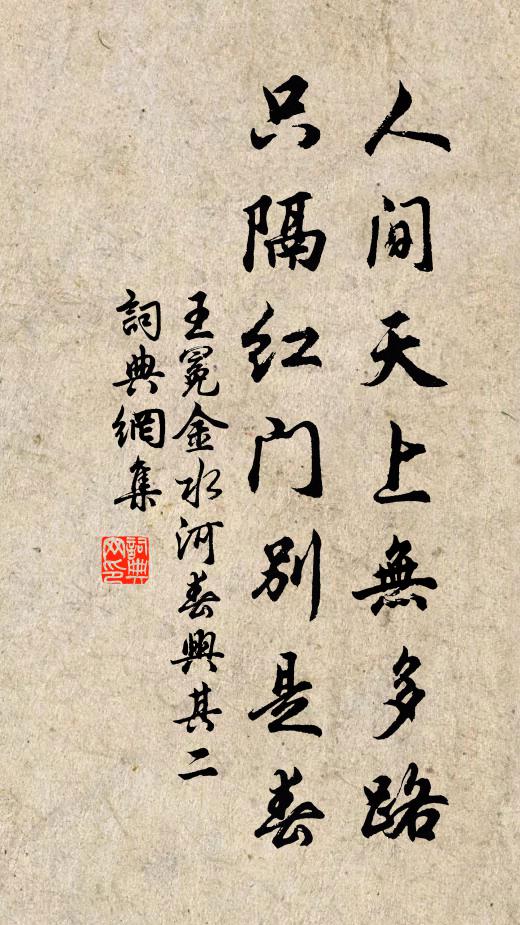 人间天上無多路
只隔红门别是春
王冕金水河春興其二
詞典網集
詞典網印